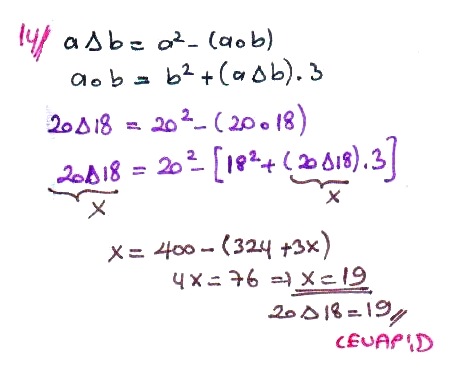 14/ a Δ b = a² - (a∘b)
a∘b = b² + (a Δ b).3
20Δ18 = 20² - (20∘18)
20Δ18 = 20² - [18² + (20Δ18).3]
x x
x = 400 - (324 + 3x)
4x = 76 ⇒ x = 19
20Δ18 = 19//
CEVAP:D